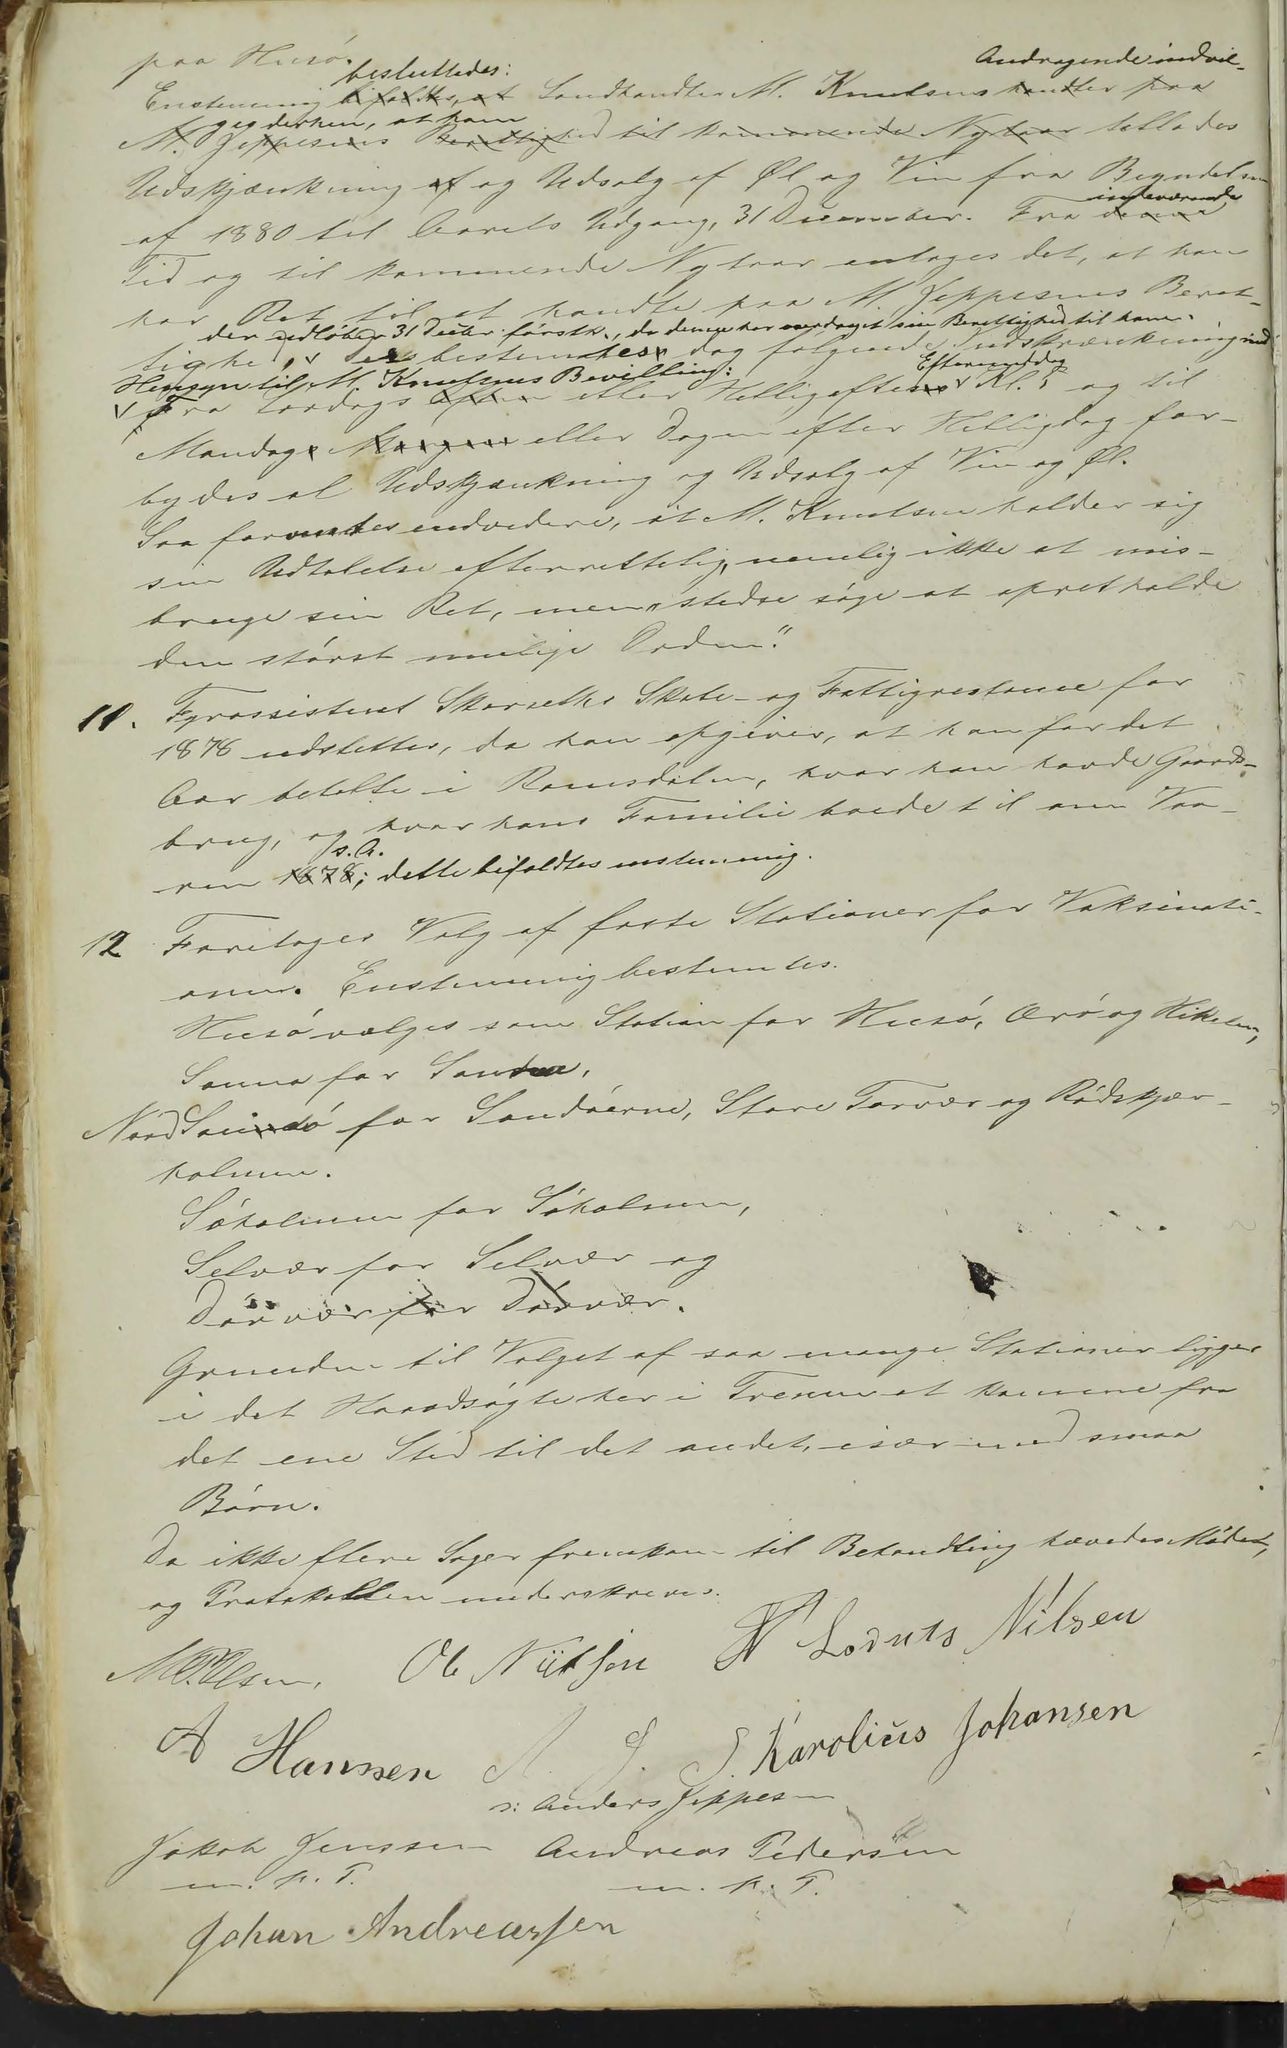 paa Husø.
besluttedes: Andragende indvil-
Enstemmig bifaldtes, at Landhandler M. Knutsens handler paa
ges derhen, at ham
M. Jeppesens Berettighed til kommende Nytaar tillades
Udskjænkning af og Udsalg af Øl og Vin fra Begyndelsen
af 1880 til Aarets Udgang, 31 December. Fra denne
indeværende
Tid og til kommende Nytaar antages det, at han
har Ret til at handle paa M. Jeppesens Beret-
der udløber 31 Decbr. førstk., da denne har overdraget sin Berettighed til ham.
tighed, Der bestemtes dog følgende Indskrænkning med
Hensyn til M. Knutsens Bevilling: Eftermiddag
Fra Lørdags Aften eller Helligaften Kl. 5 og til
Mandags Morgen eller Dagen efter Helligdag for-
bydes al Udskjænkning og Udsalg af Vin og Øl.
Saa forventes endvidere, at M. Knutsen holder sig
sin Udtalelse efterrettelig, nemlig ikke at mis-
bruge sin Ret, men "stedse søge at opretholde
den størst mulige Orden."
11. Fyrassistent Skarseths Skate- og Fattigrestance for
1878 udslettes, da han opgiver, at han for det
Aar betalte i Romsdalen, hvor han havde Gaards-
brug, og hvor hans Familie boede til om Vaa-
s. A.
ren 1878; dette bifaldtes enstemmig.
12 Foretoges Valg af faste Stationer for Vaksinati-
onen. Enstemmig bestemtes.
Husø vælges som Station for Husø, Ærø og Hikelen,
Sanna for Sanna,
Nord Sandø for Sandøerne, Store Torvær og Rødskjær-
holmen.
Søholmen for Søholmen,
Selvær for Selvær og
Dørvær for Dørvær.
Grunden til Valget af saa mange Stationer ligger
i det Haardsøgte her i Trænen at komme fra
det ene Sted til det andet, især med smaa
Børn.
Da ikke flere Sager fremkom til Behandling hævedes Mødet,
og Protokollen underskreves.
M. Olsen. Ole Nilsen Lornts Nilsen
A Hanssen A. J. S. Karolius Johansen
ɔ: Anders Jeppesen
Jakob Jenssen Andreas Pedersen
m. p. P. m. p. P.
Johan Andreassen